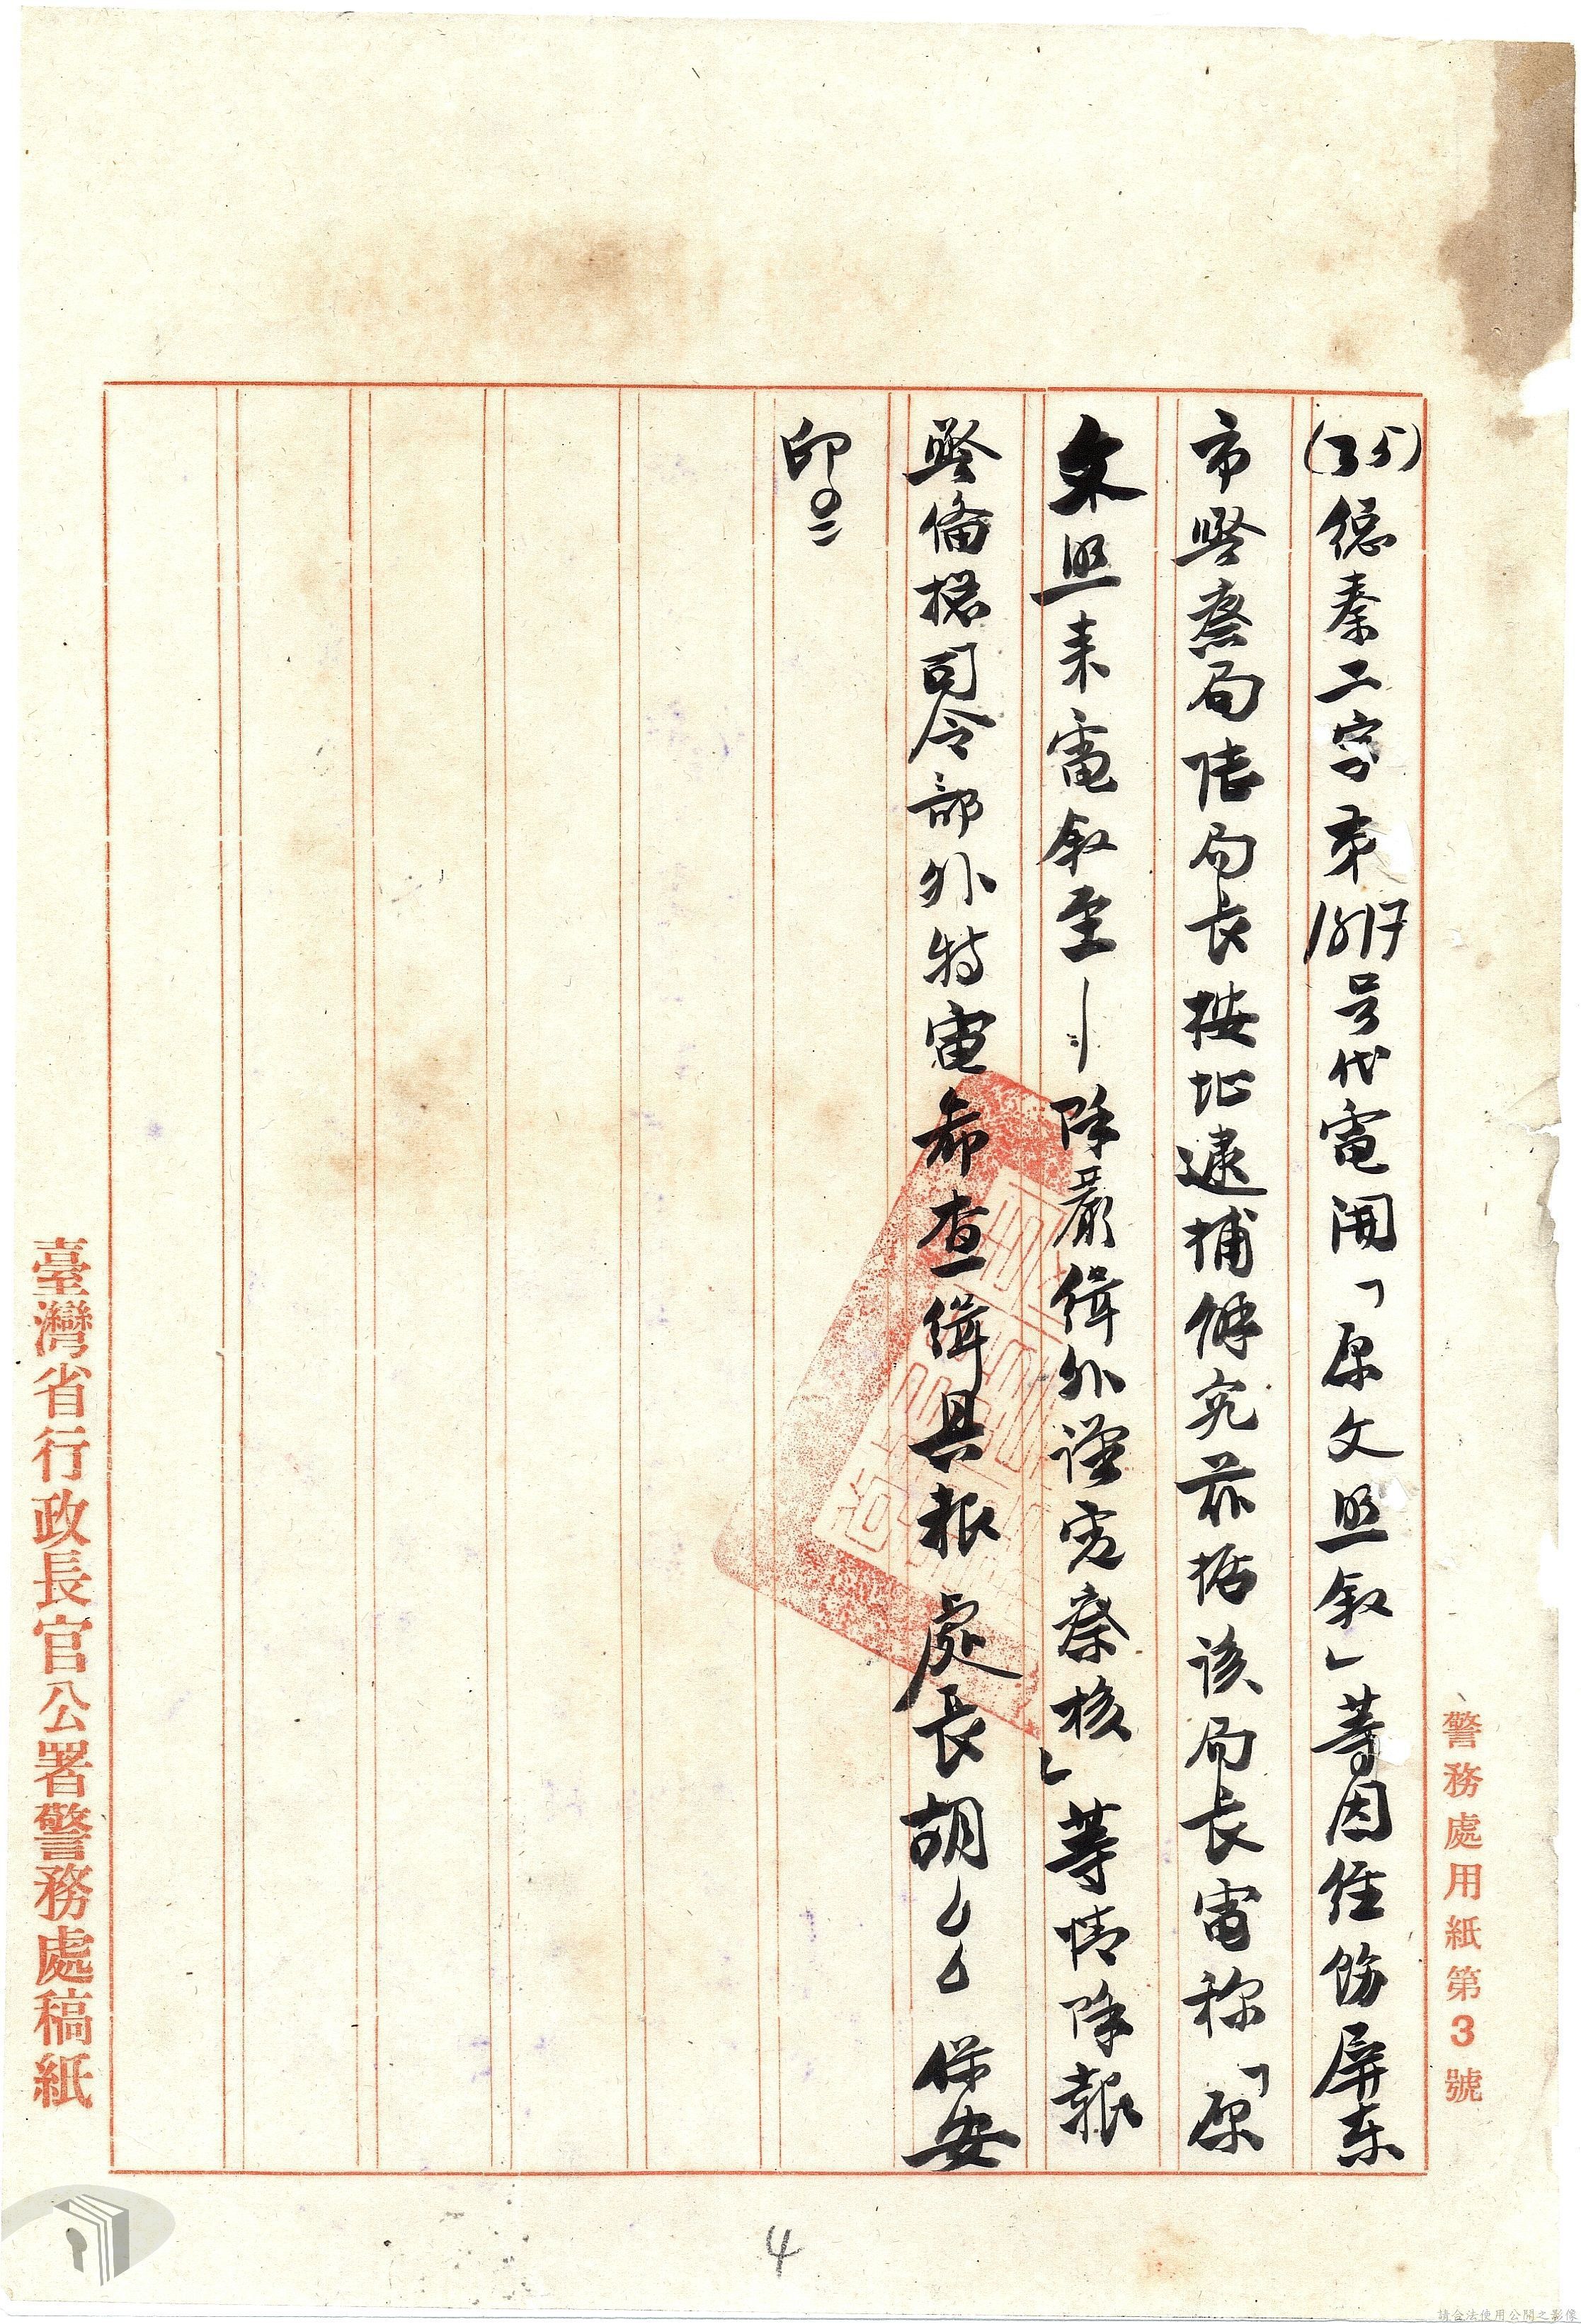 警務處用紙第3號
(35)總秦二字第1817号代電開「原文照叙」等因經飭屏东
市警察局陸局長按址逮捕解究茲据該局長電称「原
文照来電叙至……除嚴緝外謹電察核」等情除報
警備总司令部外特電希查緝具報 處長胡〇〇 保安
印
臺灣省行政長官公署警務處稿紙
4
請合法使用公開之影像